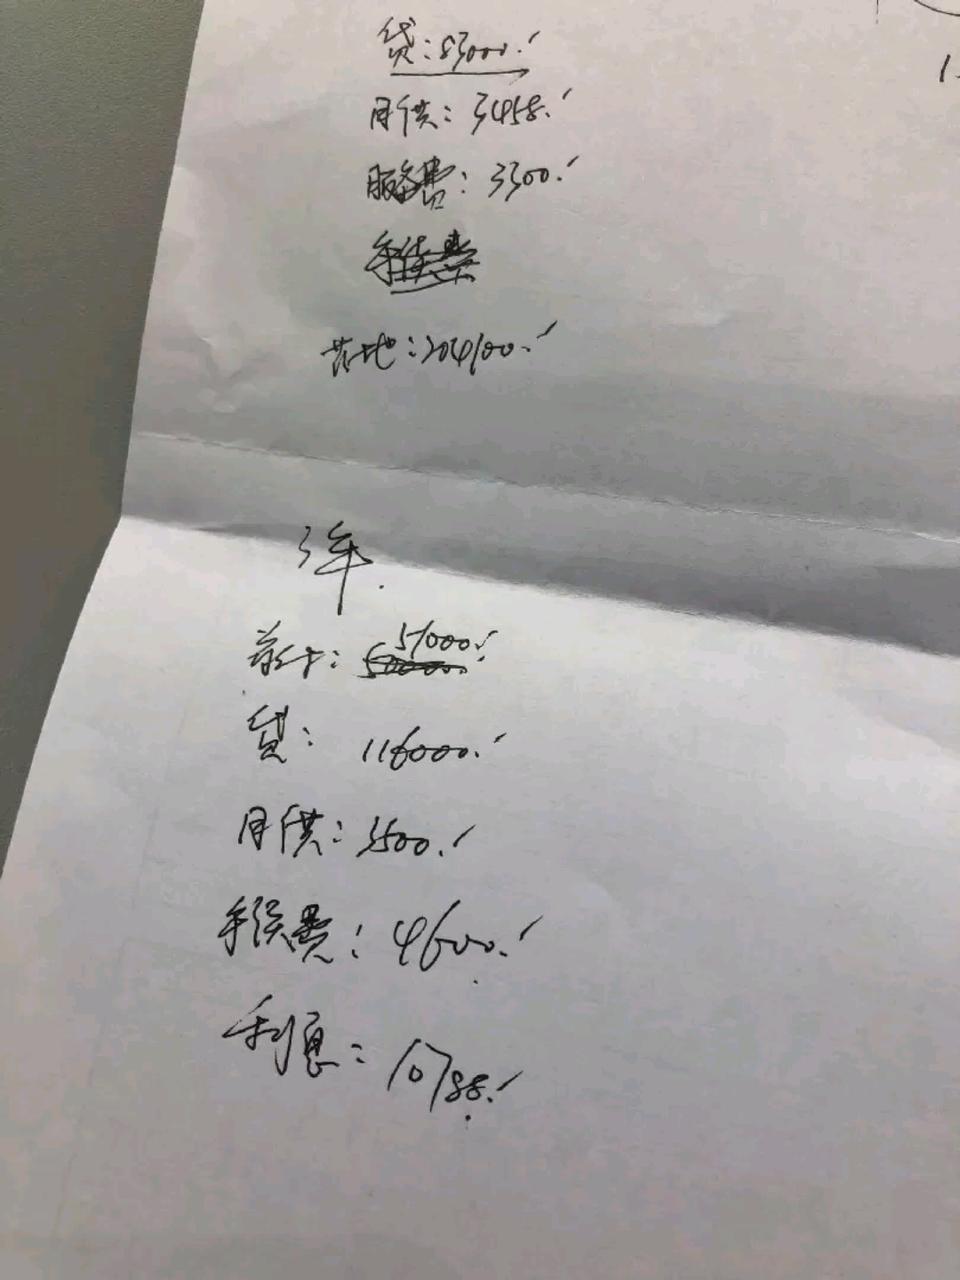 贷：83000.
月供：3458.
服务费：3300.
手续费
落地：204100.
3年.
首付：51000.
贷：116000.
月供：3500.
手续费：4600.
利息：10788.